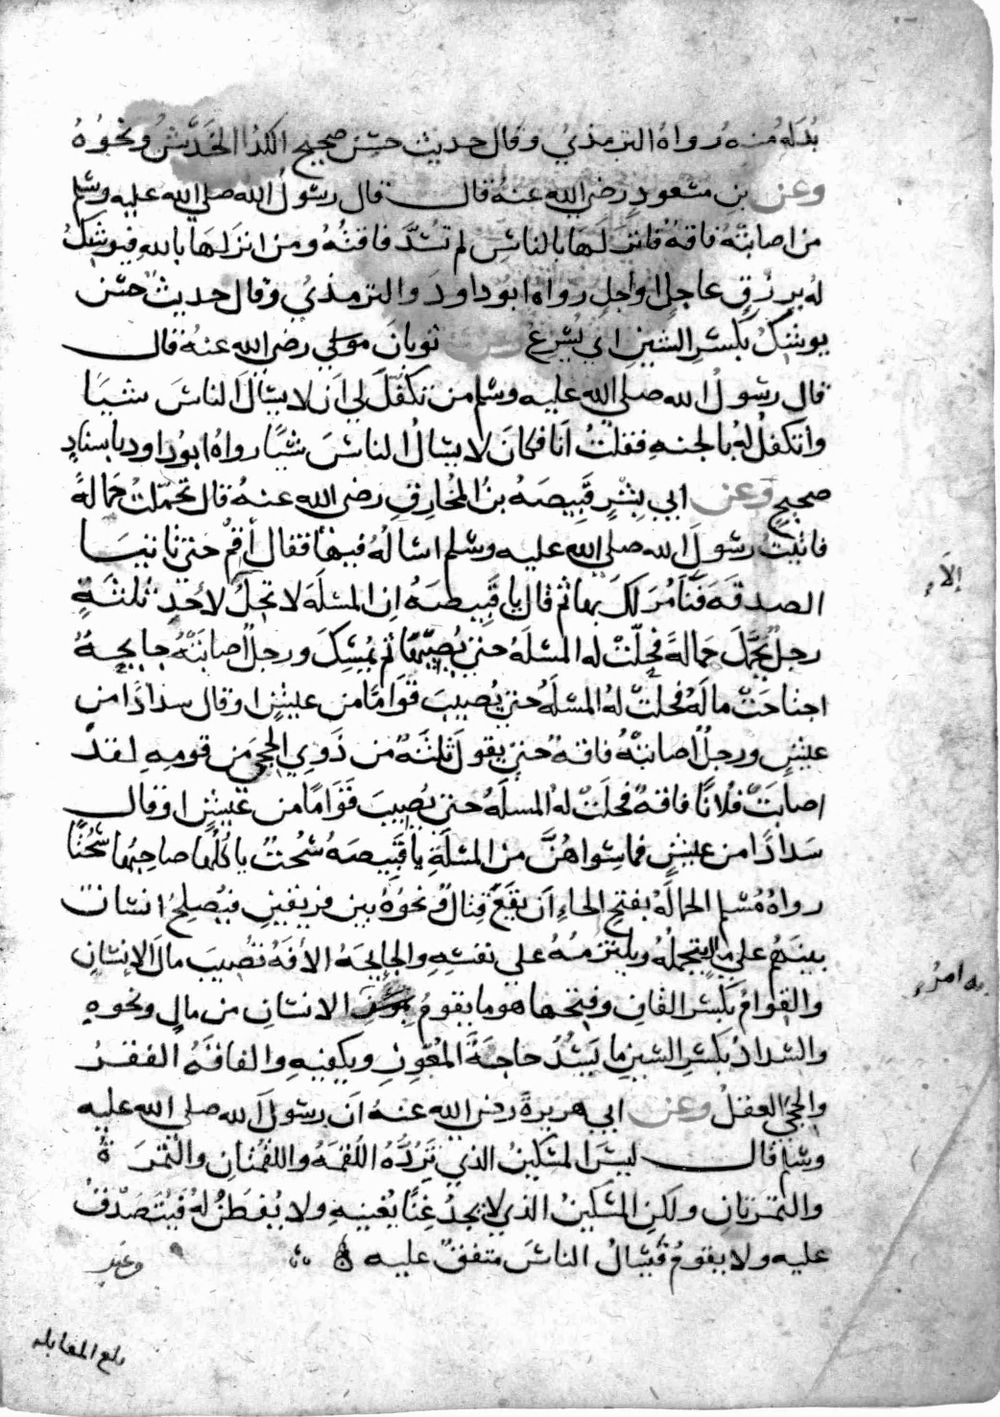 بُدَّ له مُنه رواهُ الترمذيُ وقال حديث حسَن صحيح الكدُ الخَدْشُ ونحْوُهُ
وعن بنِ مسْعودٍ رضى الله عنهُ قال قال رسُولُ الله صلى الله عليه وسلم
من اصابتْهُ فاقهٌ فانزلهَا بالناسِ لم تُسدَّ فاقتُهُ ومن انزلهَا باللهِ فيوشكُ
لهُ برزقٍ عاجلٍ اواجلٍ رواه ابوُداودَ والترمذيُ وقال حديث حسَن
يوشكُ بكسْرِ الشينِ اي يُسْرعُ وعن ثوبانَ مولي رضي الله عنهُ قال
قال رسولُ الله صلي الله عليه وسلم من تكفّلَ لي اَن لا يسْالَ الناسَ شيئًا
واتكفلُ لهُ بالجنهِ فقلتُ اَنا فكانَ لا يسْالُ الناسَ شيئًا رواهُ ابوُداود باسنادٍ
صحيحٍ وعن ابي بِشْرٍ قَبِيصَهَ بنُ المخارقِ رضى الله عنهُ قال تحمَّلتُ حَمَالهً
فاتيْتُ رسُولَ الله صلي الله عليه وسلم اسالهُ فيهَا فقال أقِمْ حتي تاتيَنَا
الصدقَه فنَأمُرَ لكَ بهَا ثم قال يا قَبِيصَهُ اِن المسْلَهَ لا تحِلُّ لاحدِ ثلثةٍ
رجلٌ تحمَّلَ حَمَالهً فحلّتْ له المسْلهُ حتيَ يُصِيبَهَا ثم يُمْسِكَ ورجلٌ اصابتْهُ جايحهٌ
اجتاحَتْ مالَهُ فحلتْ لهُ المسْلهُ حتي يُصيبَ قوَامًا من عيشٍ اوقال سدادًا من
عيشٍ ورجلٌ اصابتْهُ فاقهٌ حتيَ يقولَ ثلثهٌ من ذوي الحجي من قومِهِ لقدْ
اصابَتْ فلانًا فاقهٌ فحلتْ لهُ المسلهُ حتيَ يُصيبَ قوَامًا من عيشٍ اوقال
سدادًا من عيشٍ فما سِواهُنَّ من المسْلةِ يا قبيصَهُ سُحتٌ ياكُلُها صاحبُها سُحْتًا
رواهُ مُسْلم الحمالهُ بفتحِ الحاءِ اَن يقعَ قِتالٌ ونحْوُهُ بين فريقينِ فيُصلحُ انسَانٌ
بينهُم علي مالٍ يتحملُهُ ويلتزمُهُ علي نفسِهِ والجايحهُ الآفهُ تُصيبَ مالَ الانسَانِ
والقوامُ بكسْرِ القافِ وفتحها هوما يقومُ به الانسَانِ من مالٍ ونحوهِ
والسدادُ بكسْرِ السينِ ما يَسُدُّ حاجهَ المُعْوِزِ ويكفيهِ والفاقهُ الفقرُ
والحِجيَ العقلُ وعن ابي هريرةَ رضي الله عنهُ اَن رسولَ الله صلي الله عليه
وسلم قال ليسَ المسْكينُ الذي تَرُدُّهُ اللُقمهُ واللقمتانِ والتمْرَةُ
والتمرتانِ ولكنِ المسْكينُ الذي لا يجدُ غِنًا يُغنيهِ ولا يُفطَنُ لهُ فيُتصدّقُ
عليه ولا يقومُ فيَسْالُ الناسَ متفقٌ عليه
وعنه
إلاَّ
به امرُ
بلغ المقابله